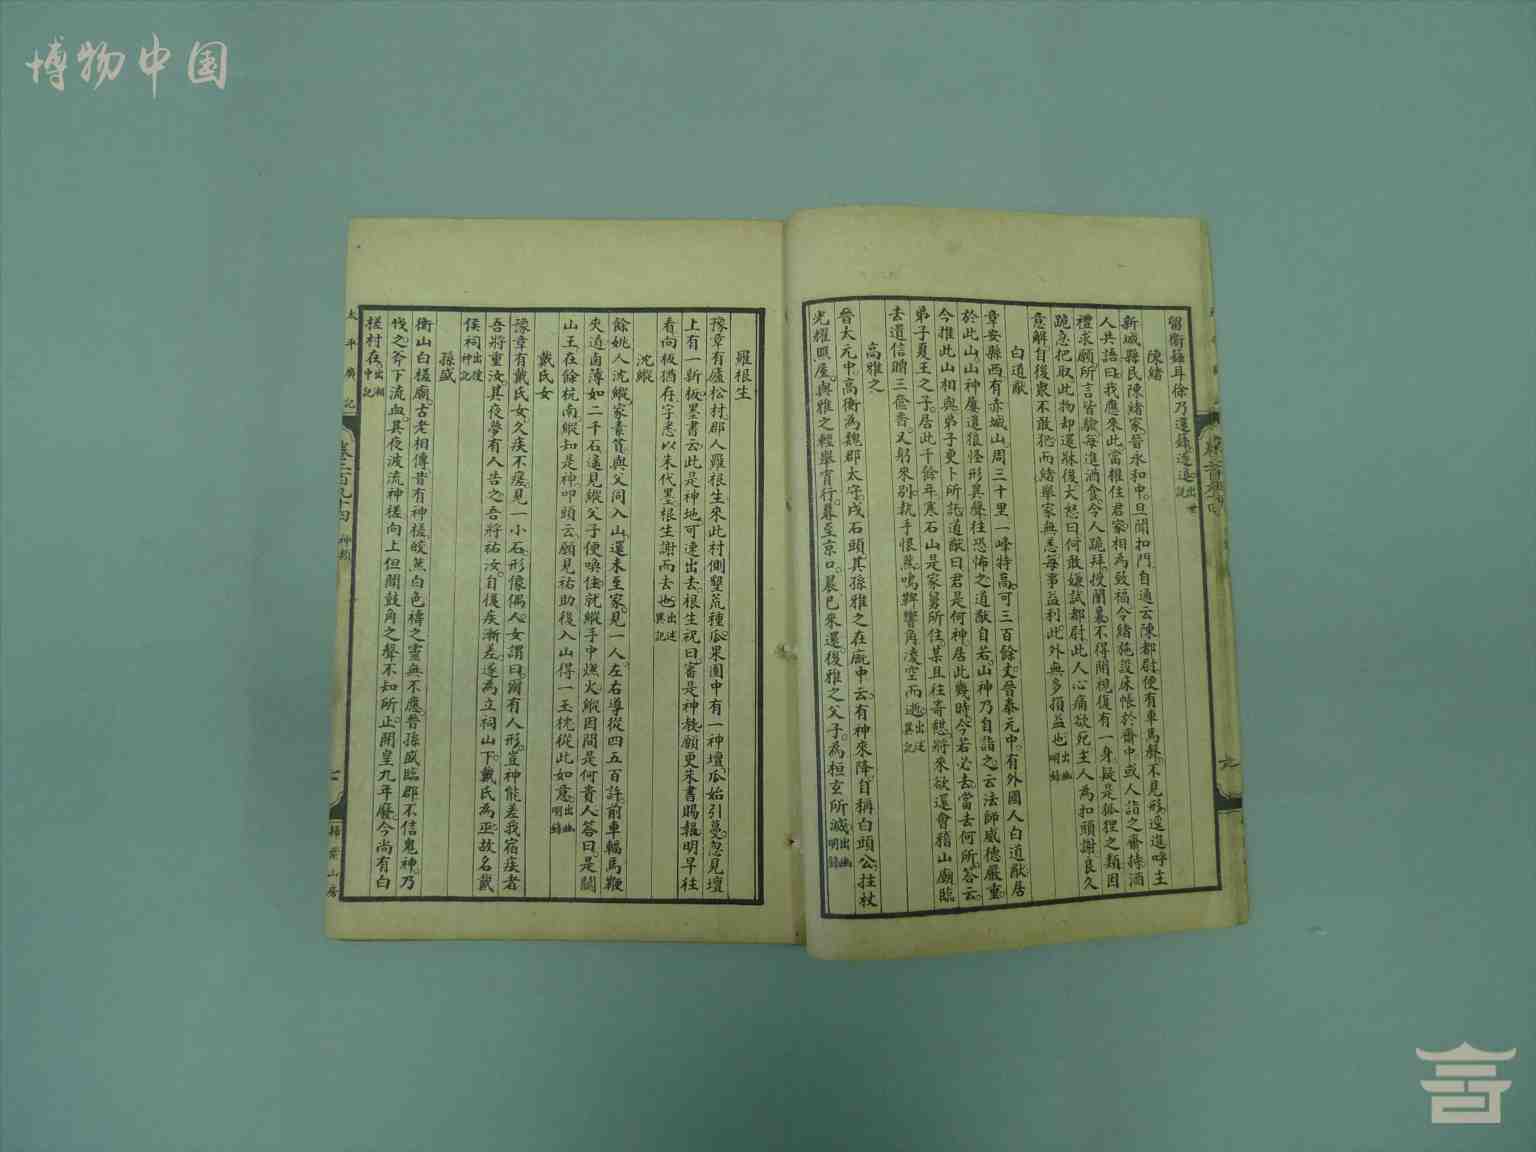 博物中国
留銜鎚耳徐乃還鎚遂返出世說
陳緒
新城縣民陳緒家晉永和中旦聞扣門自通云陳都尉便有車馬聲不見形逕進呼主
人共語曰我應來此當權住君家相為致福令緒施設床帳於齋中或人詣之齋持酒
禮求願所言皆驗每進酒食令人跪拜授閣裏不得開視復有一身疑是狐狸之類因
跪急把取此物却還牀後大怒曰何敢嫌試都尉此人心痛欲死主人為扣頭謝良久
意解自後衆不敢犯而緒舉家無恙每事益利此外無多損益也出幽明錄
白道猷
章安縣西有赤城山周三十里一峰特高可三百餘丈晉泰元中有外國人白道猷居
於此山山神屢遣狼怪形異聲往恐怖之道猷自若山神乃自詣之云法師威德嚴重
今推此山相與弟子更卜所託道猷曰君是何神居此幾時今若必去當去何所答云
弟子夏王之子居此千餘年寒石山是家舅所住某且往寄憩將來欲還會稽山廟臨
去遺信贈三奩香又躬來別執手恨然鳴鞞響角凌空而逝出述異記
高雅之
晉太元中高衡為魏郡太守戍石頭其孫雅之在廐中云有神來降自稱白頭公拄杖
光耀照屋與雅之輕舉宵行暮至京口晨已來還後雅之父子為桓玄所滅出幽明錄
羅根生
豫章有廬松村郡人羅根生來此村側墾荒種瓜果園中有一神壇瓜始引蔓忽見壇
上有一新板墨書云此是神地可速出去根生祝曰審是神教願更朱書賜報明早往
看向板猶存字悉以朱代墨根生謝而去也出述異記
沈縱
餘姚人沈縱家素貧與父同入山還未至家見一人左右導從四五百許前車輻馬鞭
夾道鹵薄如二千石遙見縱父子便喚住就縱手中燃火縱因問是何貴人答曰是鬬
山王在餘杭南縱知是神叩頭云願見祐助後入山得一玉枕從此如意出幽明錄
戴氏女
豫章有戴氏女久疾不瘥見一小石形像偶人女謂曰爾有人形豈神能差我宿疾者
吾將重汝其夜夢有人告之吾將祐汝自後疾漸差遂為立祠山下戴氏為巫故名戴
侯祠出搜神記
孫盛
衡山白槎廟古老相傳昔有神槎皎然白色禱之靈無不應晉孫盛臨郡不信鬼神乃
伐之斧下流血其夜波流神槎向上但聞鼓角之聲不知所止開皇九年廢今尚有白
槎村在出湘中記
太平廣記
卷二百九十四 神類
七
掃葉山房